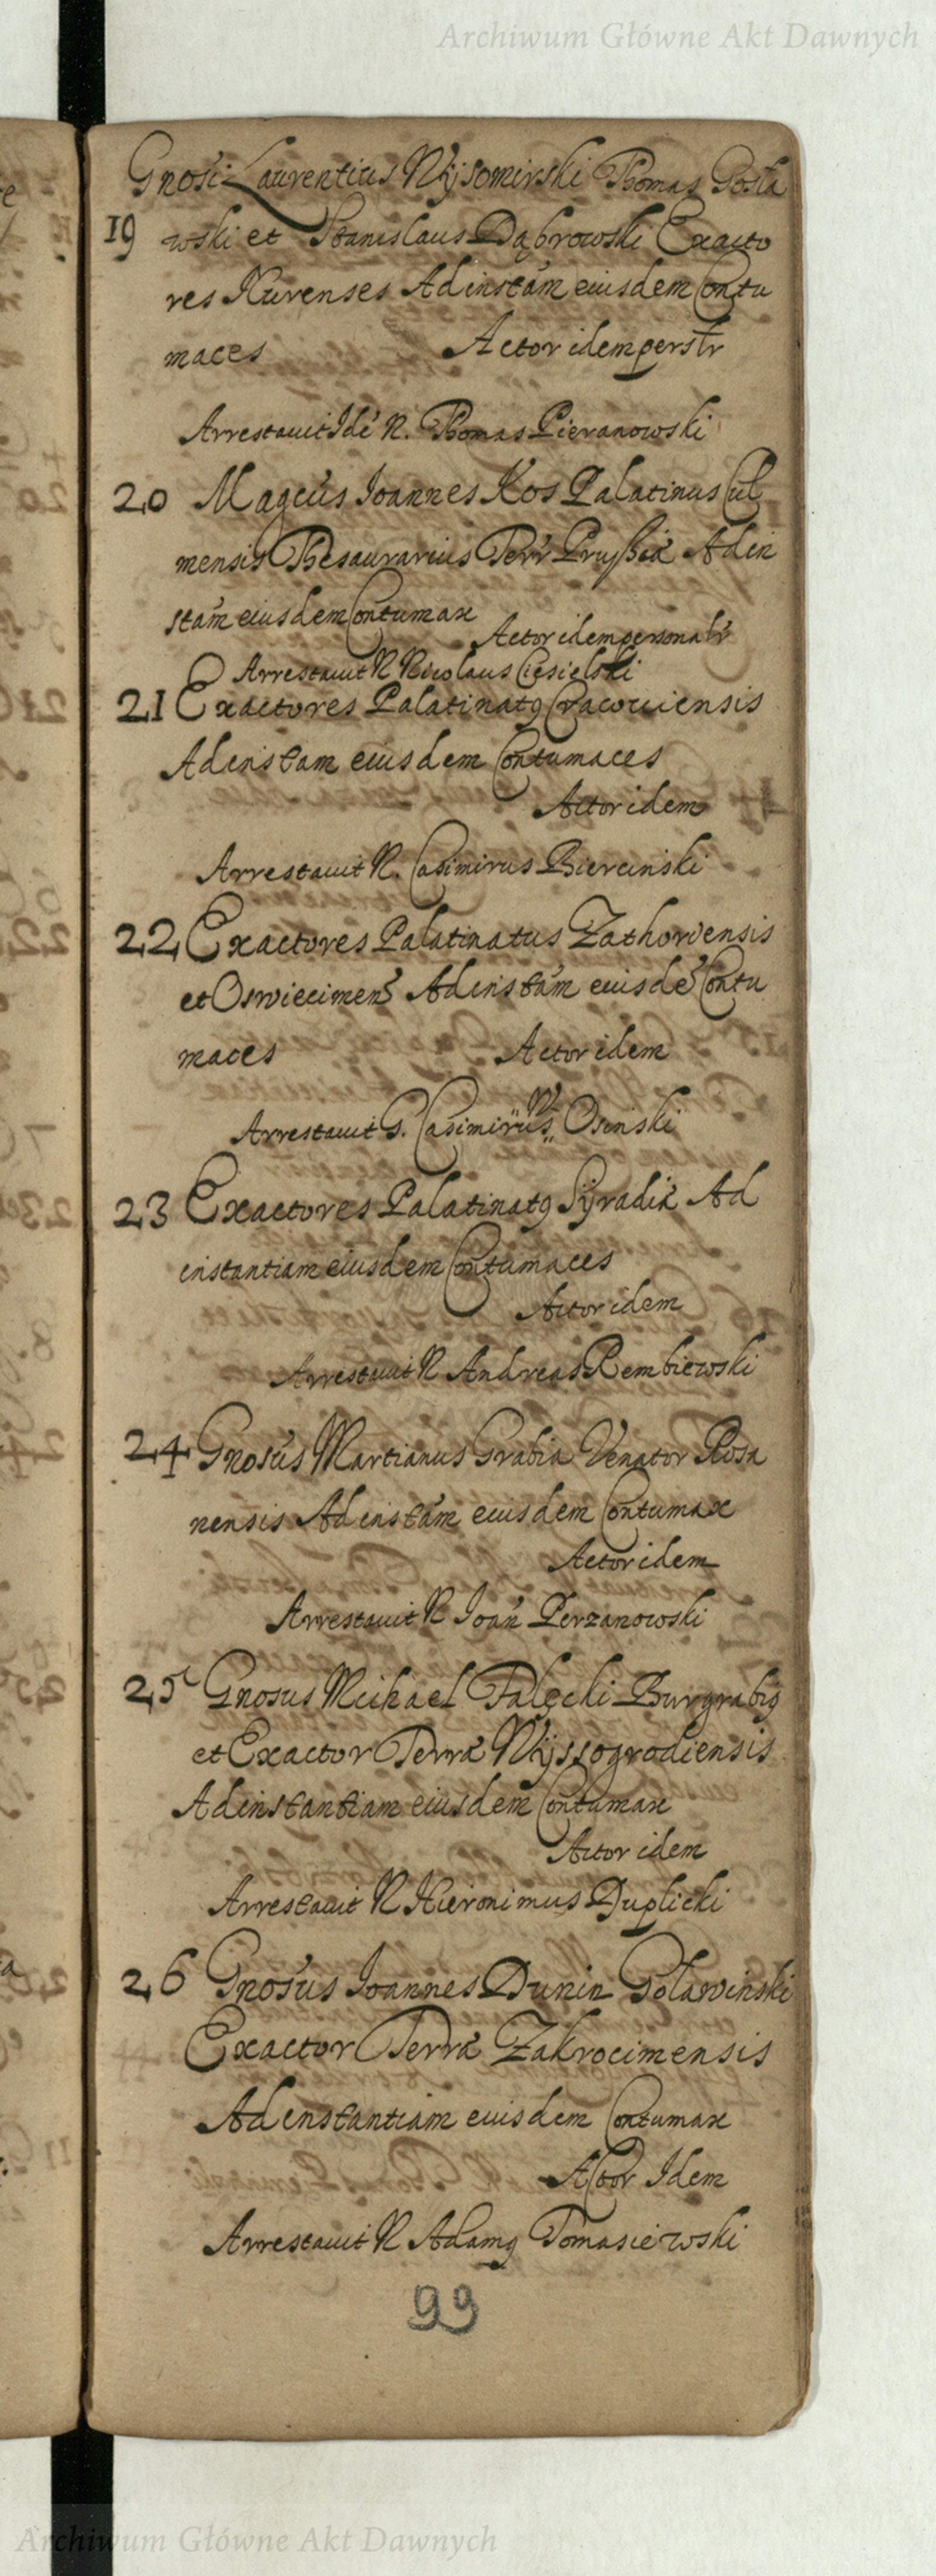 Archiwum Główne Akt Dawnych
Gnosi Laurentius Wysomirski Thomas Gosta
19 wski et Stanislaus Dąbrowski Exacto
res Nurenses Ad instam eiusdem Contu
maces Actor idem perstr
Arrestauit Ide N. Thomas Pieranowski
20 Magcus Ioannes Kos Palatinus Cul
mensis Thesaurarius Terr Prussiæ Ad in
stam eiusdem Contumax
Actor idem personalr
Arrestauit N Nicolaus Ciesielski
21 Exactores Palatinatq Cracouiensis
Ad instam eiusdem Contumaces
Actor idem
Arrestauit N. Casimirus Biercinski
22 Exactores Palatinatus Zathoroensis
et Oswiecimens Ad instam eiusde Contu
maces Actor idem
Arrestauit G. Casimirus Osinski
23 Exactores Palatinatq Syradiæ Ad
instantiam eiusdem Contumaces
Actor idem
Arrestauit N Andreas Rembiewski
24 Gnosus Martianus Grabia Venator Rosa
nensis Ad instam eiusdem Contumax
Actor idem
Arrestauit N Ioan Perzanowski
25 Gnosus Michael Falęcki Burgrabiq
et Exactor Terræ Wyssogrodiensis
Ad instantiam eiusdem Contumax
Actor idem
Arrestauit N Hieronimus Duplicki
26 Gnosus Ioannes Dunin Golawinski
Exactor Terræ Zakrocimensis
Ad instantiam eiusdem Contumax
Actor Idem
Arrestauit N Adamq Tomasiewski
99
Archiwum Główne Akt Dawnych